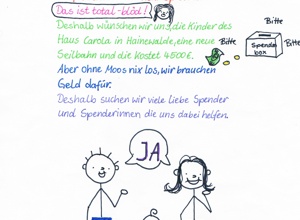 Das ist total blöd!
Deshalb wünschen wir uns, die Kinder des
Haus Carola in Hainewalde, eine neue
Seilbahn und die Kostet 4500€.
Bitte
Bitte
Bitte
Spenden
box
Aber ohne Moos nix los, wir brauchen
Geld dafür.
Deshalb suchen wir viele liebe Spender
und Spenderinnen die uns dabei helfen.
JA